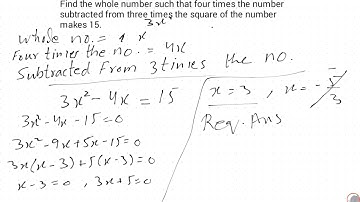 Find the whole number such that four times the number
subtracted from three times the square of the number
makes 15.
3x²
whole no. = x
Four times the no. = 4x
Subtracted from 3 times the no.
3x² - 4x = 15
3x² - 4x - 15 = 0
3x² - 9x + 5x - 15 = 0
3x(x - 3) + 5(x - 3) = 0
x - 3 = 0 , 3x + 5 = 0
x = 3 , x = - 5/3
Req. Ans